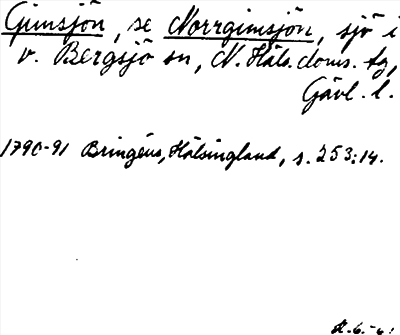 Gimsjön, se Norrgimsjön, sjö i
v. Bergsjö sn, N. Häls. doms. tg,
Gävl. l.
1790-91 Bringéus, Hälsingland, s. 253:14.